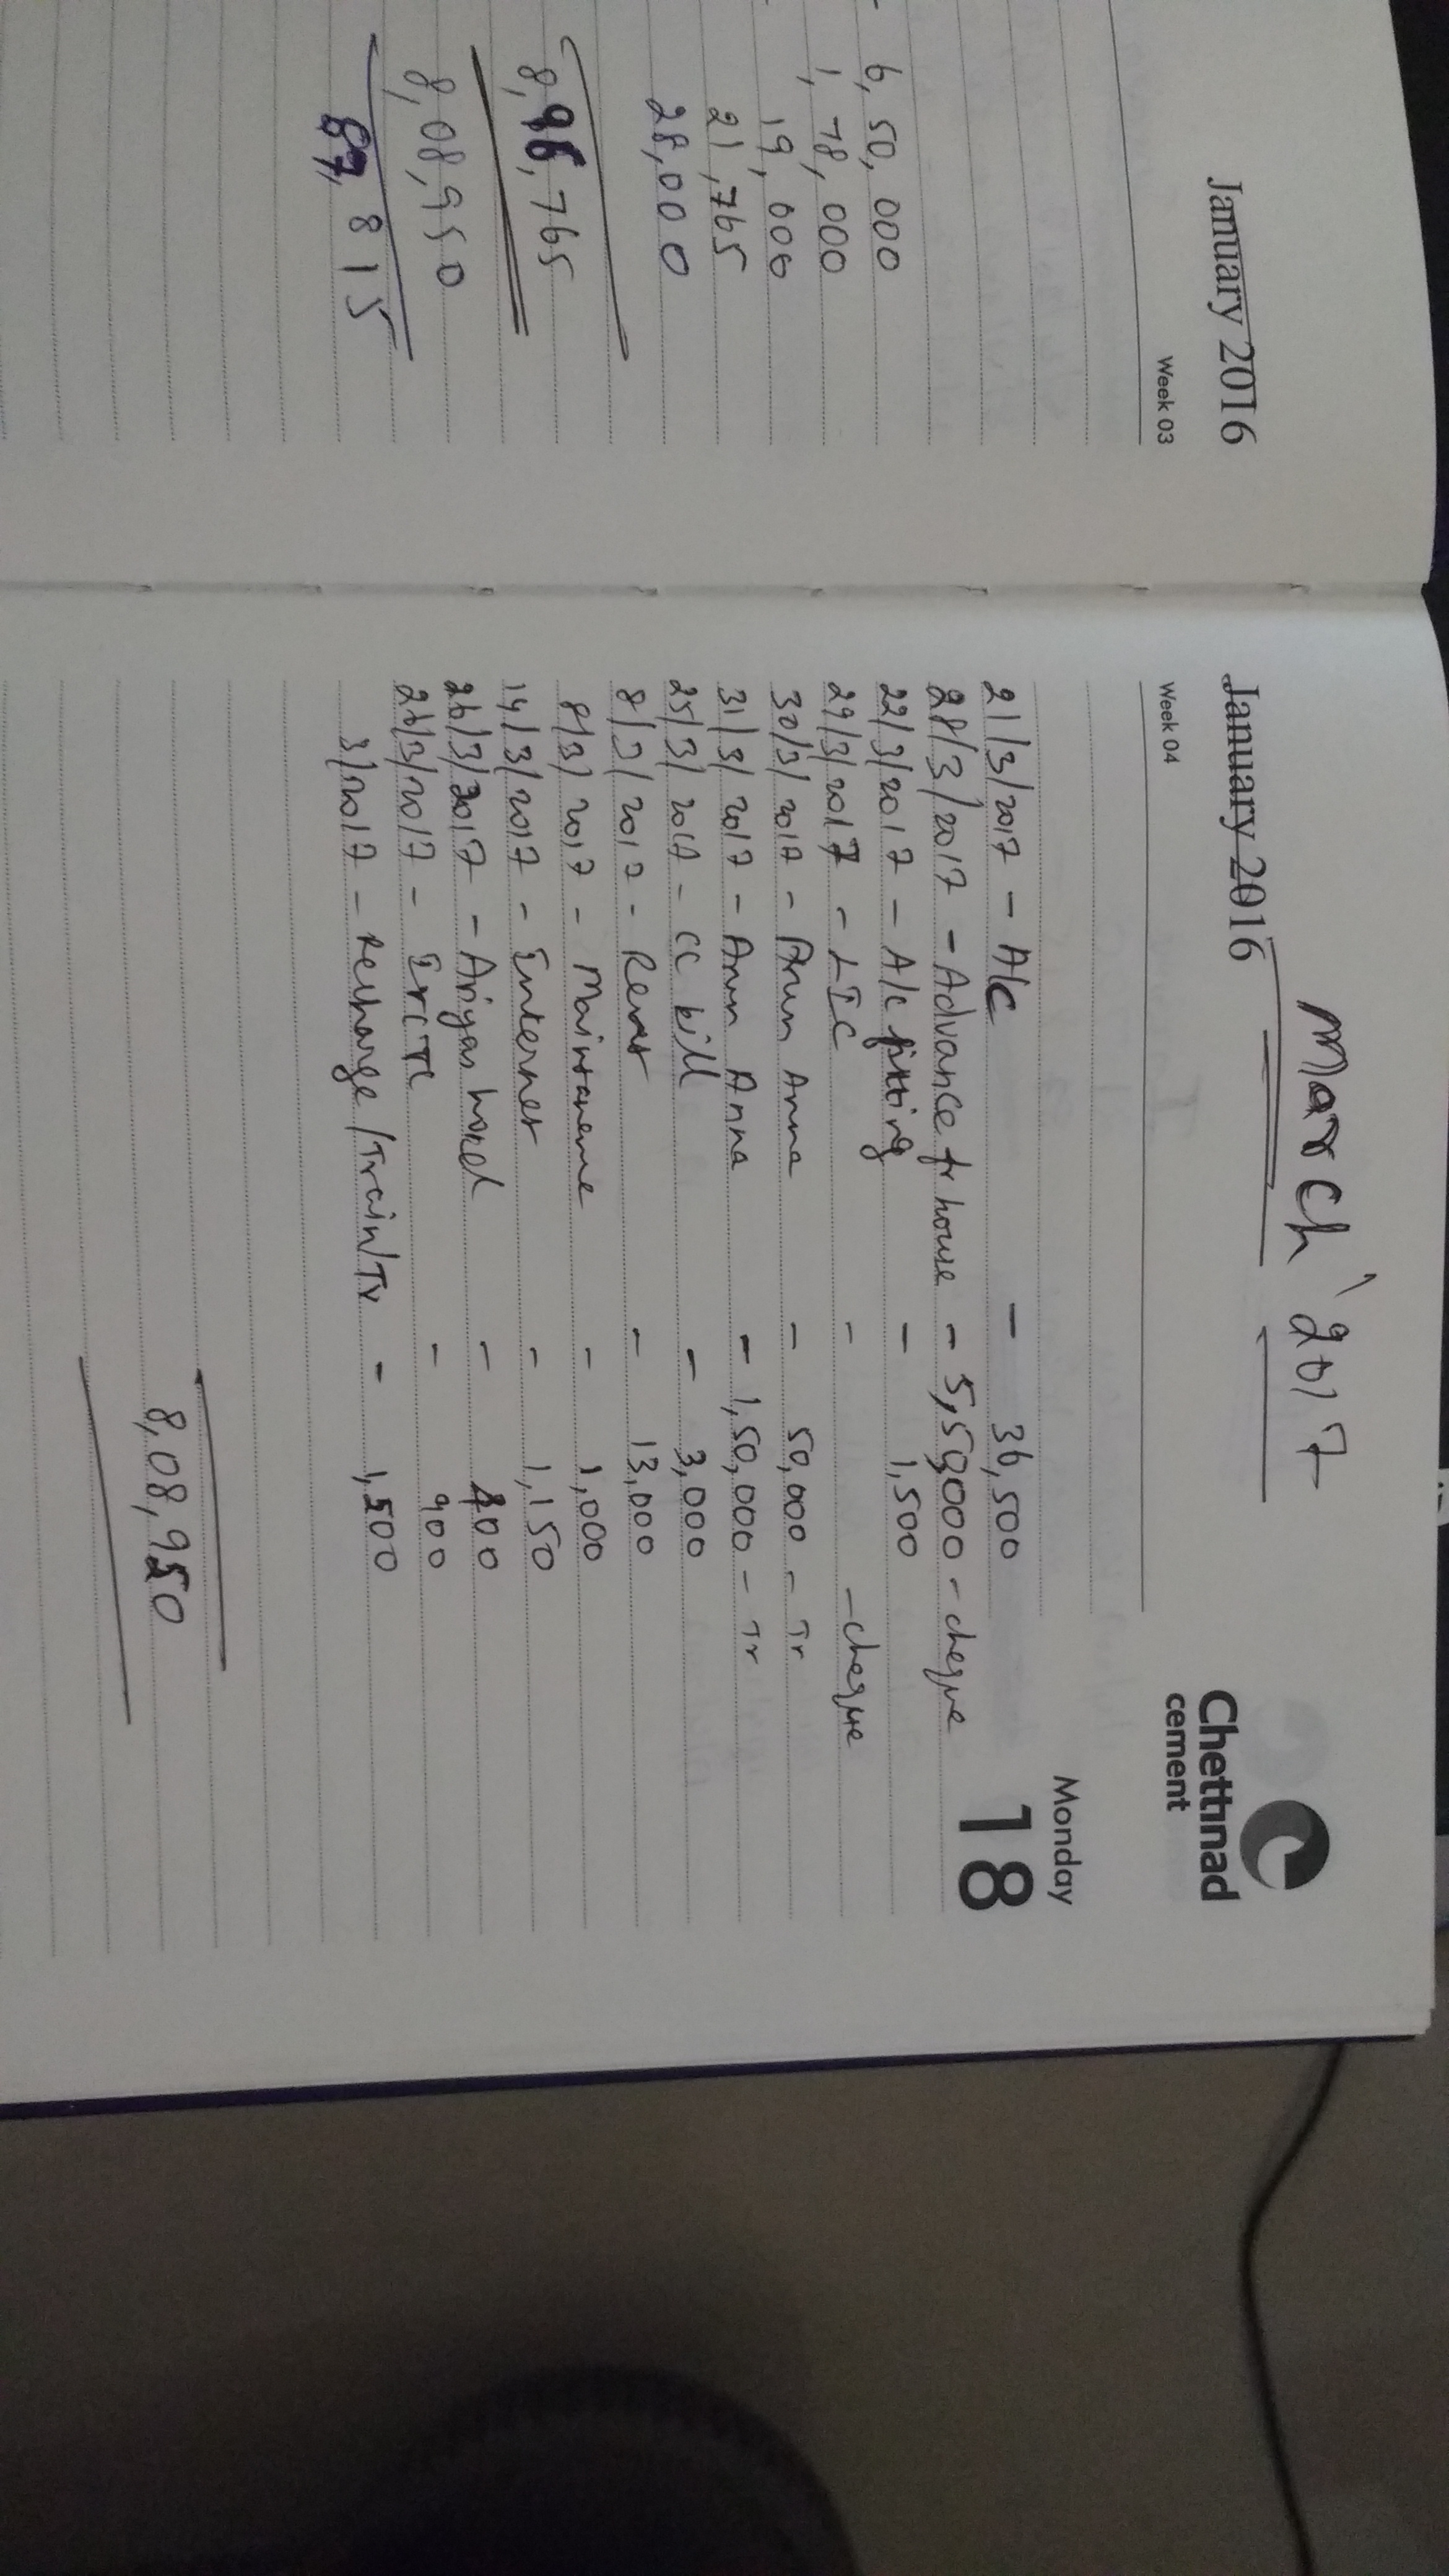 January 2016
Week 03
6,50,000
1,78,000
19,000
21,765
28,000
8,96,765
8,08,950
87,815
March '2017
January 2016
Week 04
Chettinad
cement
Monday
18
21/3/2017 - A/c - 36,500
28/3/2017 - Advance fr house - 5,50,000 - cheque
22/3/2017 - A/c fitting - 1,500
29/3/2017 - LIC - - cheque
30/3/2017 - Arun Anna - 50,000 - Tr
31/3/2017 - Arun Anna - 1,50,000 - Tr
25/3/2017 - CC bill - 3,000
8/3/2017 - Rent - 13,000
8/3/2017 - Maintanence - 1,000
14/3/2017 - Internet - 1,150
26/3/2017 - Ariyas hotel - 400
26/3/2017 - IRCTC - 900
3/2017 - Recharge/Train/TV - 1,500
8,08,950